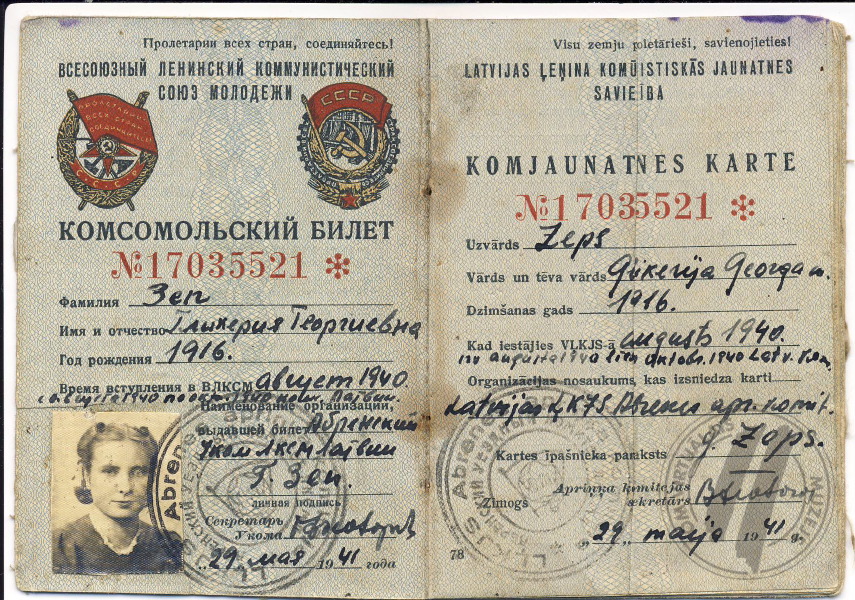 Пролетарии всех стран, соединяйтесь!
ВСЕСОЮЗНЫЙ ЛЕНИНСКИЙ КОММУНИСТИЧЕСКИЙ
СОЮЗ МОЛОДЕЖИ
ПРОЛЕТАРИИ
ВСЕХ СТРАН
СОЕДИНЯЙТЕСЬ
СССР
СССР
КОМСОМОЛЬСКИЙ БИЛЕТ
№17035521
Фамилия Зеп
Имя и отчество Глыкерия Георгиевна
Год рождения 1916.
Время вступления в ВЛКСМ август 1940.
Наименование организации,
выдавшей билет Абренский
Уком ЛКСМ Латвии
Г. Зеп.
личная подпись
Секретарь
Укома
"29" мая 1941 года
Visu zemju proletārieši, savienojieties!
LATVIJAS ĻEŅINA KOMŪISTISKĀS JAUNATNES
SAVIEĪBA
KOMJAUNATNES KARTE
№17035521
Uzvārds Zeps
Vārds un tēva vārds Glikerija Georga m.
Dzimšanas gads 1916.
Kad iestājies VĻKJS-ā augusts 1940.
Organizācijas nosaukums, kas izsniedza karti
Latvijas ĻKJS Abrenes apr. komit.
Kartes īpašnieka paraksts G. Zeps.
Apriņķa komitejas
Zīmogs sekretārs
"29" maijā 1941 g.
78